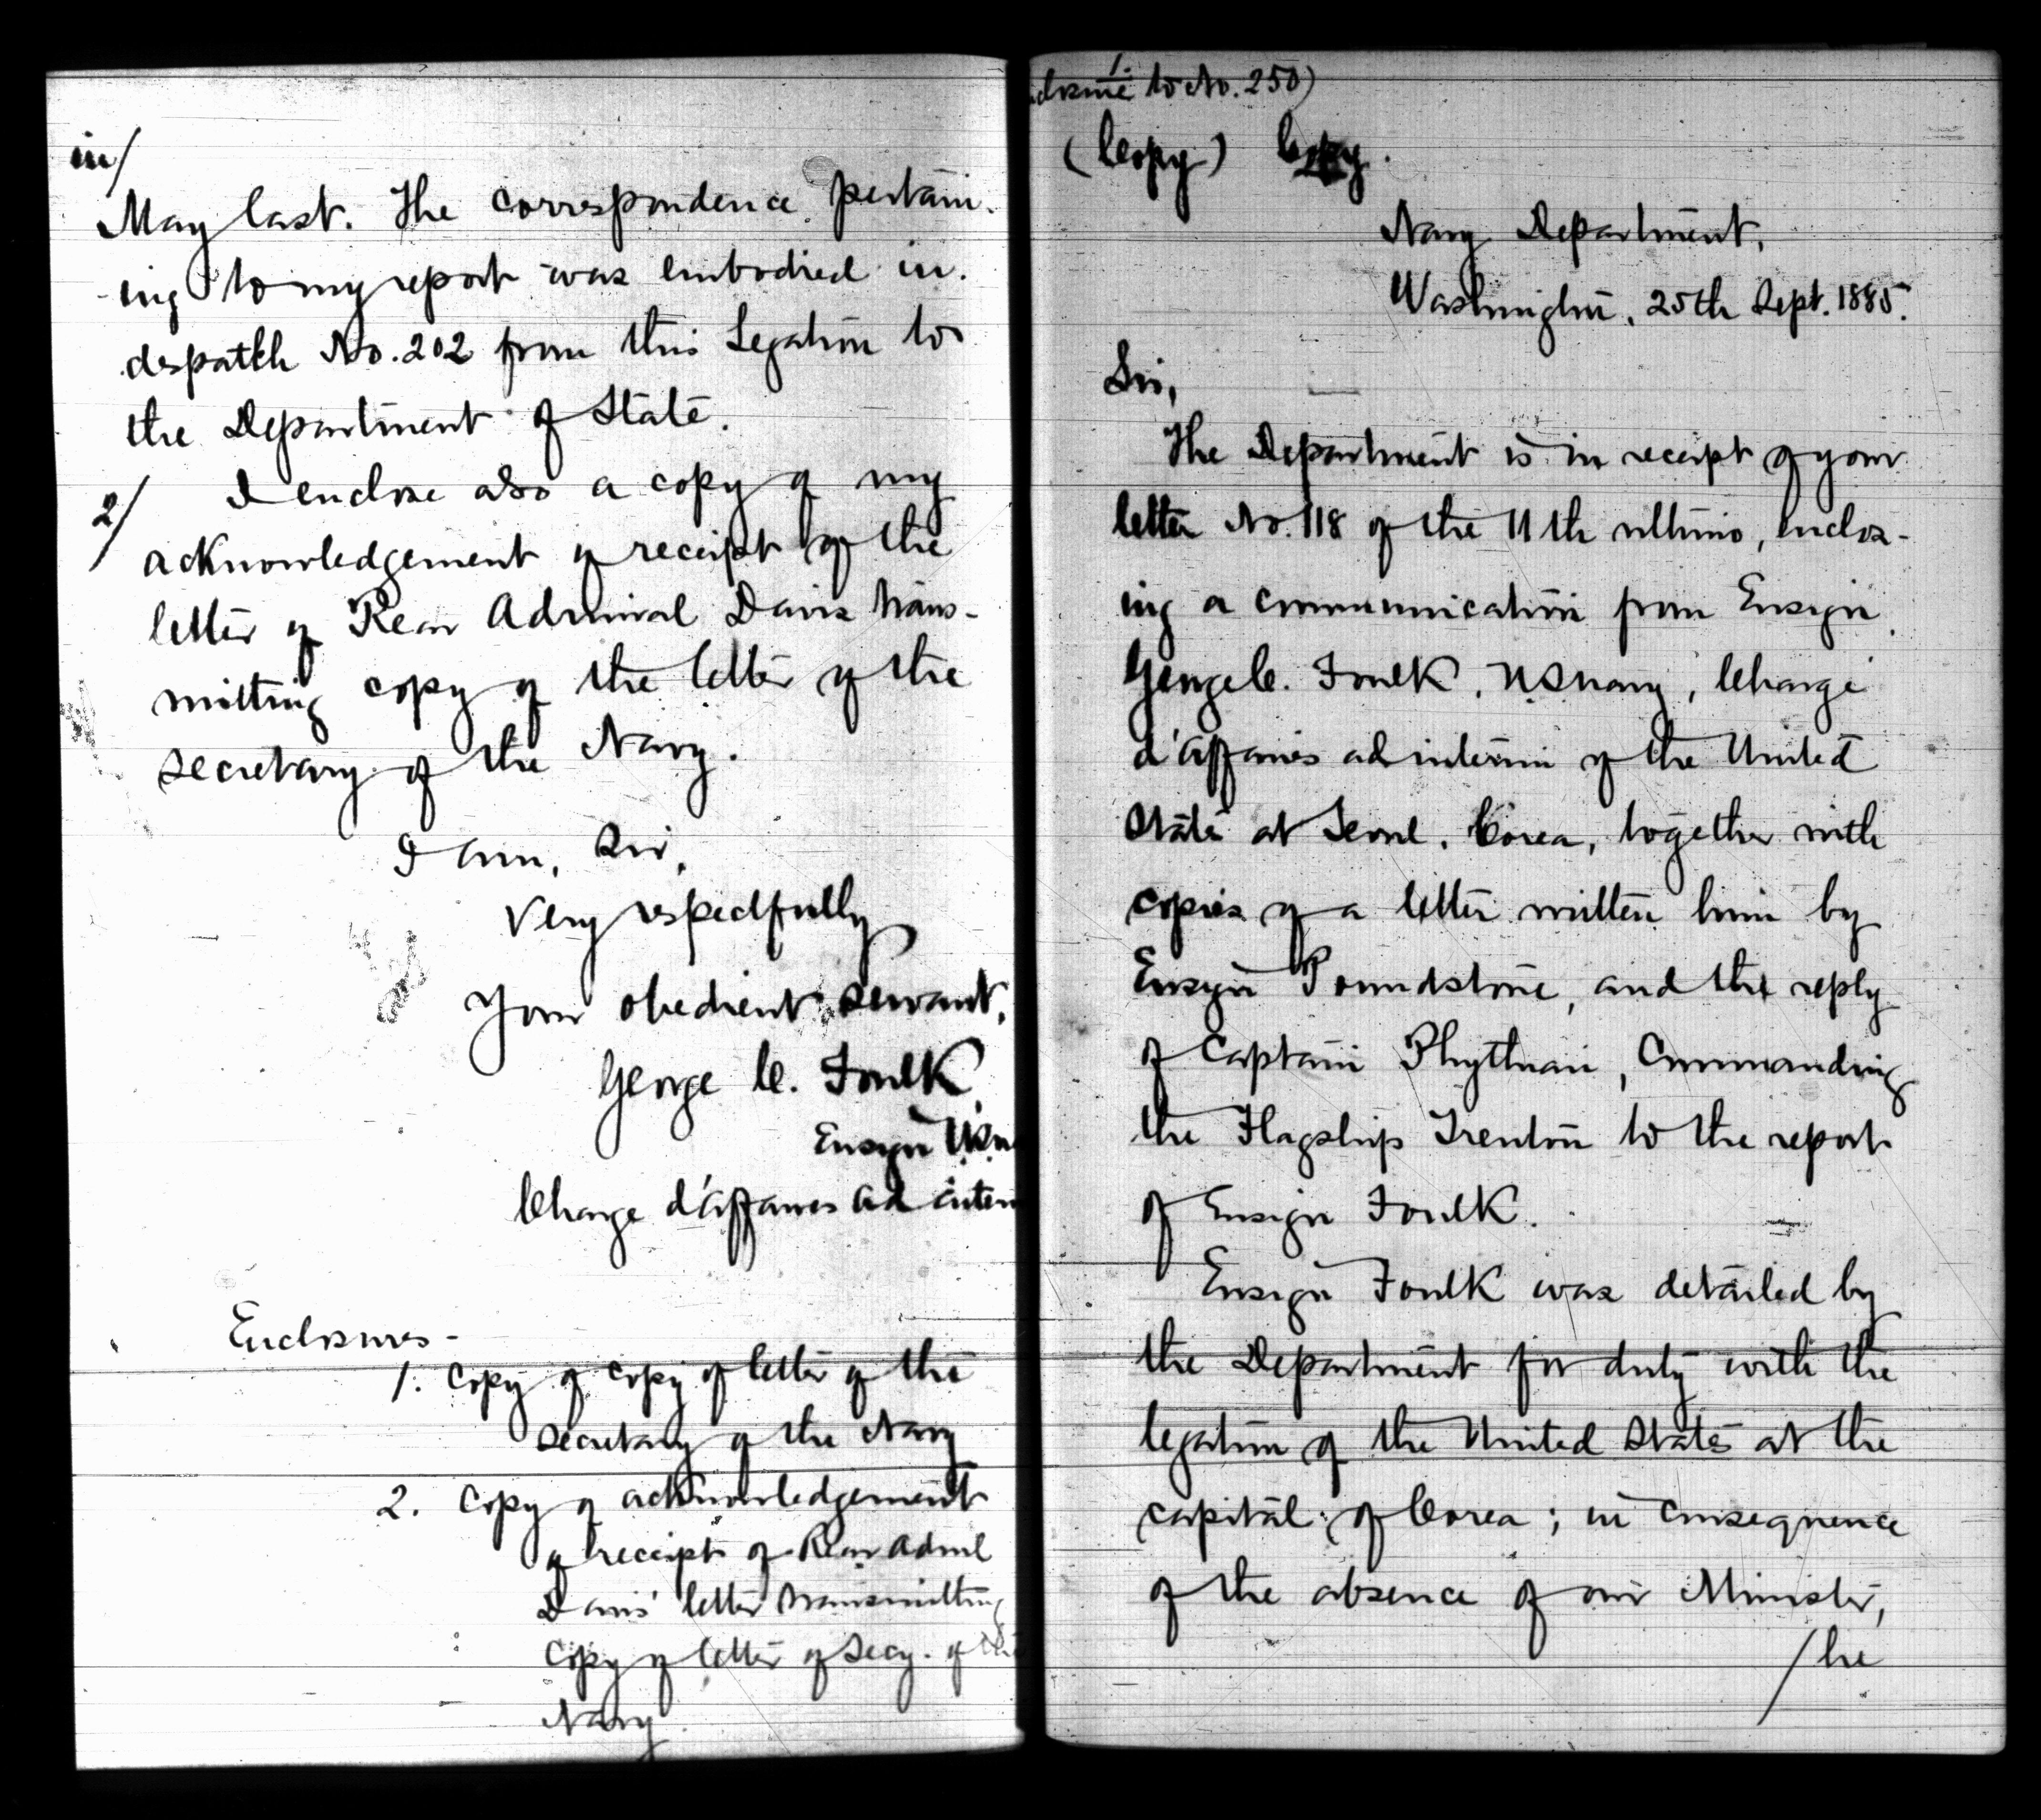 in/
May last. The correspondence pertain-
ing to my report was embodied in
despatch No. 202 from this Legation to
the Department of State.
2/ I enclose also a copy of my
acknowledgement of receipt of the
letter of Rear Admiral Davis trans-
mitting copy of the letter of the
Secretary of the Navy.
I am, Sir,
Very respectfully
Your obedient servant,
George C. Foulk
Ensign U.S.N
Charge d'affaires ad interi
Enclosures -
1. Copy of copy of letter of the
Secretary of the Navy
2. Copy of acknowledgement
of receipt of Rear Adml
Davis' letter transmitting
copy of letter of Secy. of the
Navy.
1.
closure to No. 250)
(Copy) Copy.
Navy Department,
Washington, 25th Sept. 1885.
Sir,
The Department is in receipt of your
letter No. 118 of the 11th ultimo, enclos-
ing a communication from Ensign
George C. Foulk, U.S. Navy, Chargé
d'affaires ad interim of the United
States at Seoul, Corea, together with
copies of a letter written him by
Ensign Poundstone, and the reply
of Captain Phythian, Commanding
the Flagship Trenton to the report
of Ensign Foulk.
Ensign Foulk was detailed by
the Department for duty with the
legation of the United States at the
capital of Corea; in consequence
of the absence of our Minister,
/he